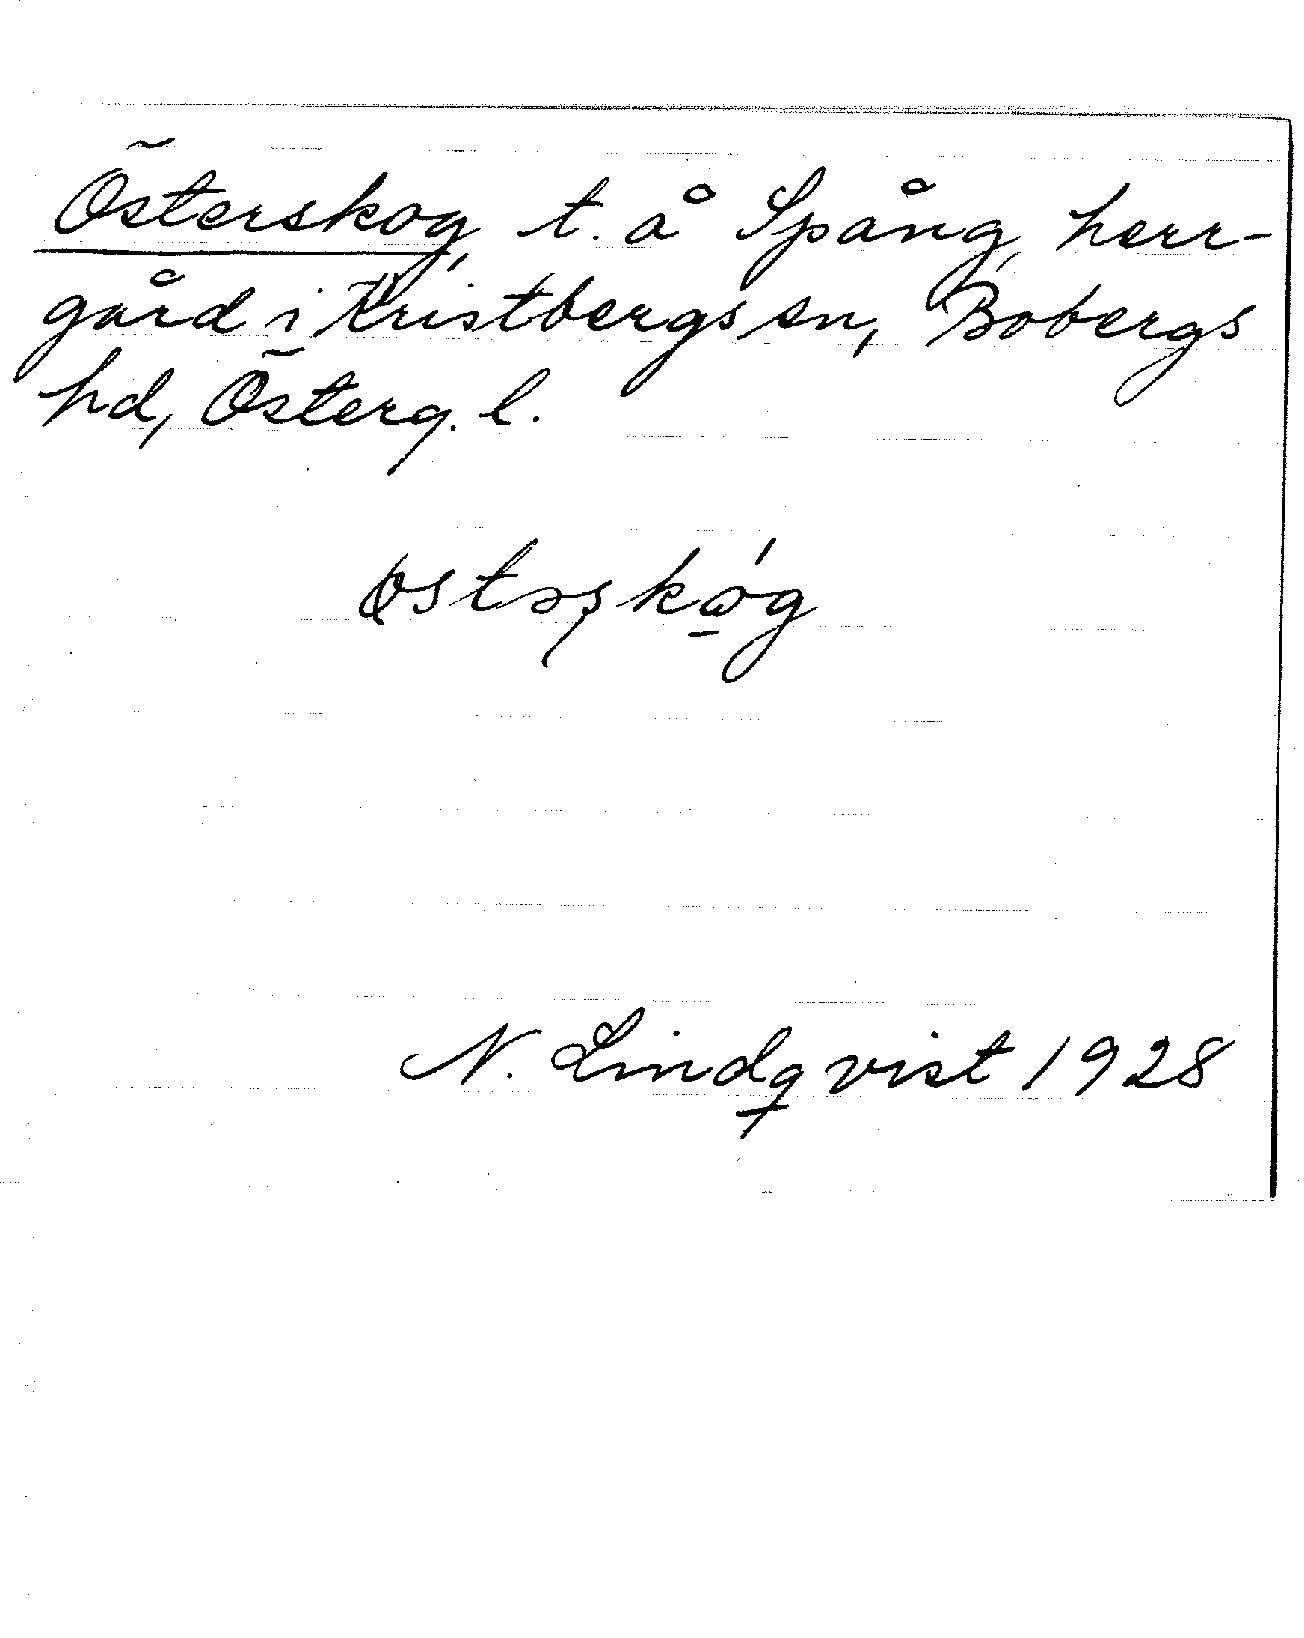 Österskog, t. å Spång, herr-
gård i Kristbergs sn, Bobergs
hd, Österg. l.
østəʂkǿ̠g
N. Lindqvist 1928